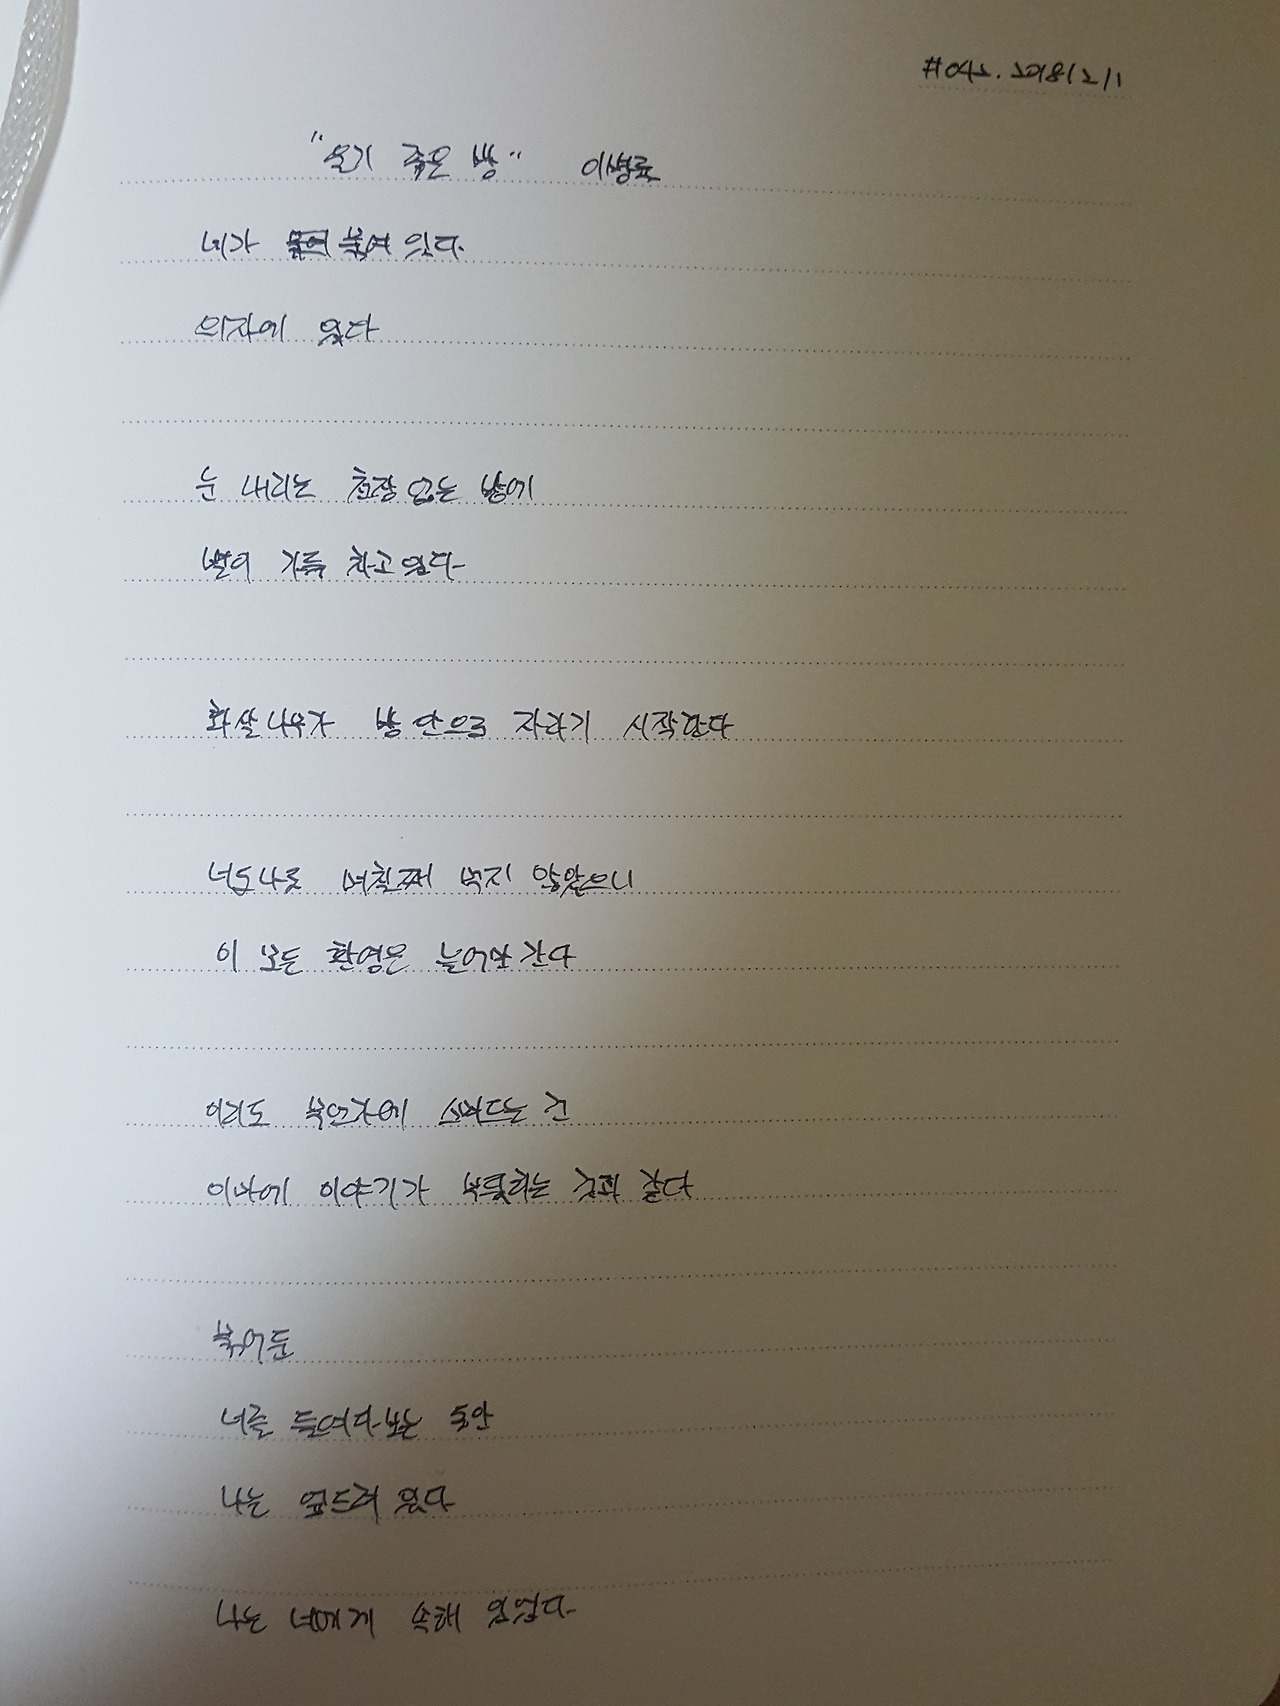 #042. 2018/2/1
"숨기 좋은 방" 이병률
네가 묶여 있다.
의자에 있다
눈 내리는 천장 없는 방에
별이 가득 차고 있다
화살나무가 방 안으로 자라기 시작한다
너도 나도 며칠째 먹지 않았으니
이 모든 환영은 늘어만 간다
이리도 무언가에 스며드는 건
이마에 이야기가 부딪히는 것과 같다
묶어둔
너를 들여다보는 동안
나는 엎드려 있다
나는 너에게 속해 있었다